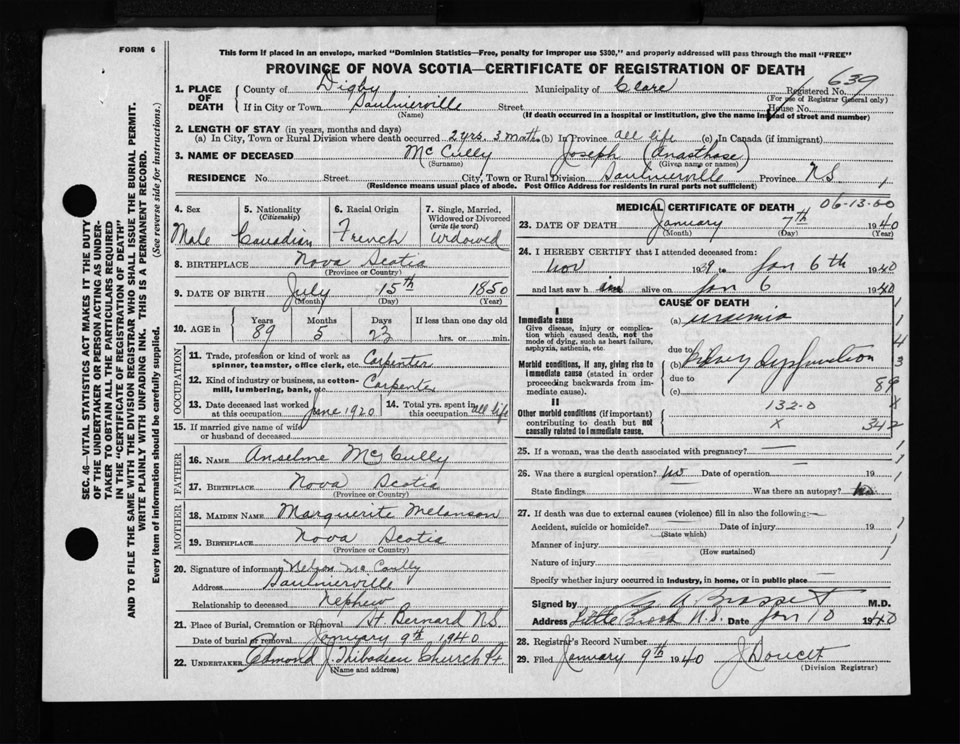 FORM 6
This form if placed in an envelope, marked "Dominion Statistics—Free, penalty for improper use $300," and properly addressed will pass through the mail "FREE"
PROVINCE OF NOVA SCOTIA—CERTIFICATE OF REGISTRATION OF DEATH
639
1. PLACE OF DEATH
County of Digby Municipality of Clare Registered No.
(For use of Registrar General only)
If in City or Town Saulnierville Street House No.
(Name) (If death occurred in a hospital or institution, give the name instead of street and number)
2. LENGTH OF STAY (in years, months and days)
(a) In City, Town or Rural Division where death occurred 2 yrs. 3 Mnth. (b) In Province all life (c) In Canada (if immigrant)
3. NAME OF DECEASED Mc Cully Joseph (Anasthase)
(Surname) (Given name or names)
RESIDENCE No. Street City, Town or Rural Division Saulnierville Province N.S. 1
(Residence means usual place of abode. Post Office Address for residents in rural parts not sufficient)
4. Sex
Male
5. Nationality
(Citizenship)
Canadian
6. Racial Origin
French
7. Single, Married, Widowed or Divorced
(write the word)
widowed
8. BIRTHPLACE Nova Scotia
(Province or Country)
9. DATE OF BIRTH July 15th 1850
(Month) (Day) (Year)
10. AGE in Years Months Days If less than one day old
89 5 23 hrs. or min.
OCCUPATION
11. Trade, profession or kind of work as spinner, teamster, office clerk, etc. Carpenter
12. Kind of industry or business, as cotton-mill, lumbering, bank, etc. Carpenter
13. Date deceased last worked at this occupation June 1920
14. Total yrs. spent in this occupation all life
15. If married give name of wife or husband of deceased
FATHER
16. NAME Anselme McCully
17. BIRTHPLACE Nova Scotia
(Province or Country)
MOTHER
18. MAIDEN NAME Marguerite Melanson
19. BIRTHPLACE Nova Scotia
(Province or Country)
20. Signature of informant Nelson McCully
Address Saulnierville
Relationship to deceased nephew
21. Place of Burial, Cremation or Removal St Bernard N.S.
Date of burial or removal January 9th 1940
22. UNDERTAKER Edmond J. Thibodeau Church Pt
(Name and address)
MEDICAL CERTIFICATE OF DEATH 06-13-00
23. DATE OF DEATH January 7th 1940
(Month) (Day) (Year)
24. I HEREBY CERTIFY that I attended deceased from:
Nov 1939 to Jan 6th 1940
and last saw h im alive on Jan 6 1940
CAUSE OF DEATH
I
Immediate cause
Give disease, injury or complication which caused death, not the mode of dying, such as heart failure, asphyxia, asthenia, etc.
(a) uraemia
due to
Morbid conditions, if any, giving rise to immediate cause (stated in order proceeding backwards from immediate cause).
(b) kidney dysfunction
due to
(c)
II
Other morbid conditions (if important) contributing to death but not causally related to immediate cause.
132-0
x
1
1
4
3
89
x
342
25. If a woman, was the death associated with pregnancy?
26. Was there a surgical operation? no Date of operation 19
State findings Was there an autopsy? no
27. If death was due to external causes (violence) fill in also the following:
Accident, suicide or homicide? Date of injury 19
(State which)
Manner of injury
(How sustained)
Nature of injury
Specify whether injury occurred in industry, in home, or in public place
Signed by M.D.
Address Little Brook N.S. Date Jan 10 1940
28. Registrar's Record Number
29. Filed January 9th 1940 J Doucet
(Division Registrar)
SEC. 46—VITAL STATISTICS ACT MAKES IT THE DUTY
OF THE UNDERTAKER OR PERSON ACTING AS UNDER-
TAKER TO OBTAIN ALL THE PARTICULARS REQUIRED
IN THE "CERTIFICATE OF REGISTRATION OF DEATH"
AND TO FILE THE SAME WITH THE DIVISION REGISTRAR WHO SHALL ISSUE THE BURIAL PERMIT.
WRITE PLAINLY WITH UNFADING INK. THIS IS A PERMANENT RECORD.
Every item of information should be carefully supplied. (See reverse side for instructions.)